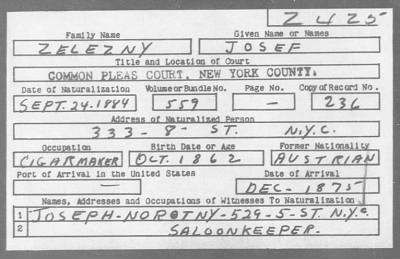 Z425
Family Name Given Name or Names
ZELEZNY JOSEF
Title and Location of Court
COMMON PLEAS COURT, NEW YORK COUNTY.
Date of Naturalization Volume or Bundle No. Page No. Copy of Record No.
SEPT. 24-1884 559 — 236
Address of Naturalized Person
333-8-ST. N.Y.C.
Occupation Birth Date or Age Former Nationality
CIGARMAKER OCT. 1862 AUSTRIAN
Port of Arrival in the United States Date of Arrival
— DEC-1875
Names, Addresses and Occupations of Witnesses To Naturalization
1 JOSEPH-NOROTNY-529-5-ST. N.Y.C.
2 SALOONKEEPER.